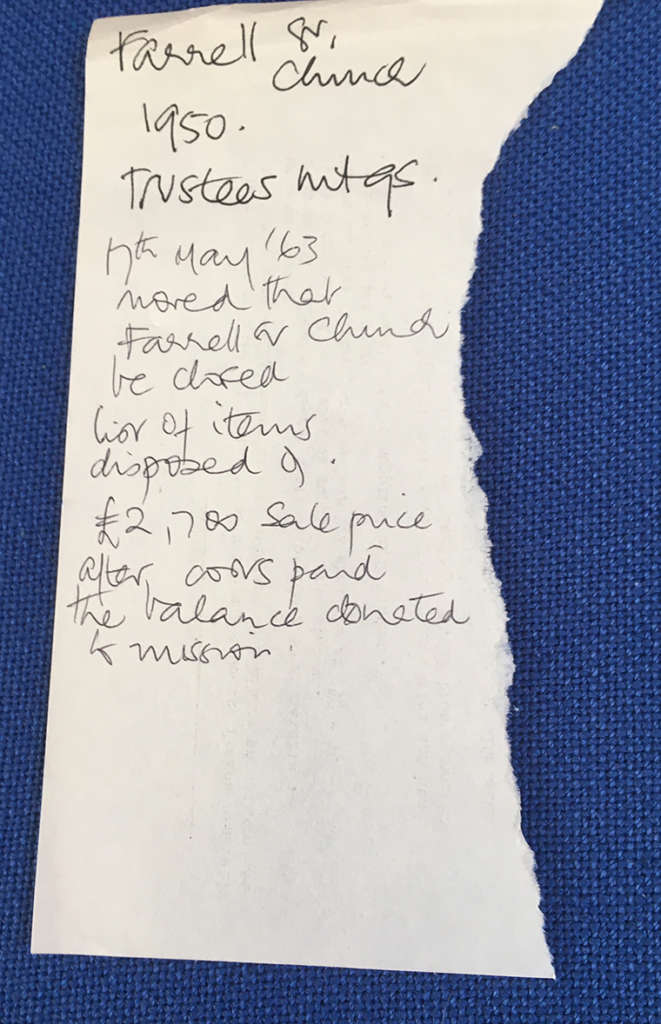 Farrell St,
Church
1950.
Trustees mtgs.
17th May '63
moved that
Farrell St Church
be closed
list of items
disposed of.
£2,700 sale price
after costs paid
the balance donated
to mission.